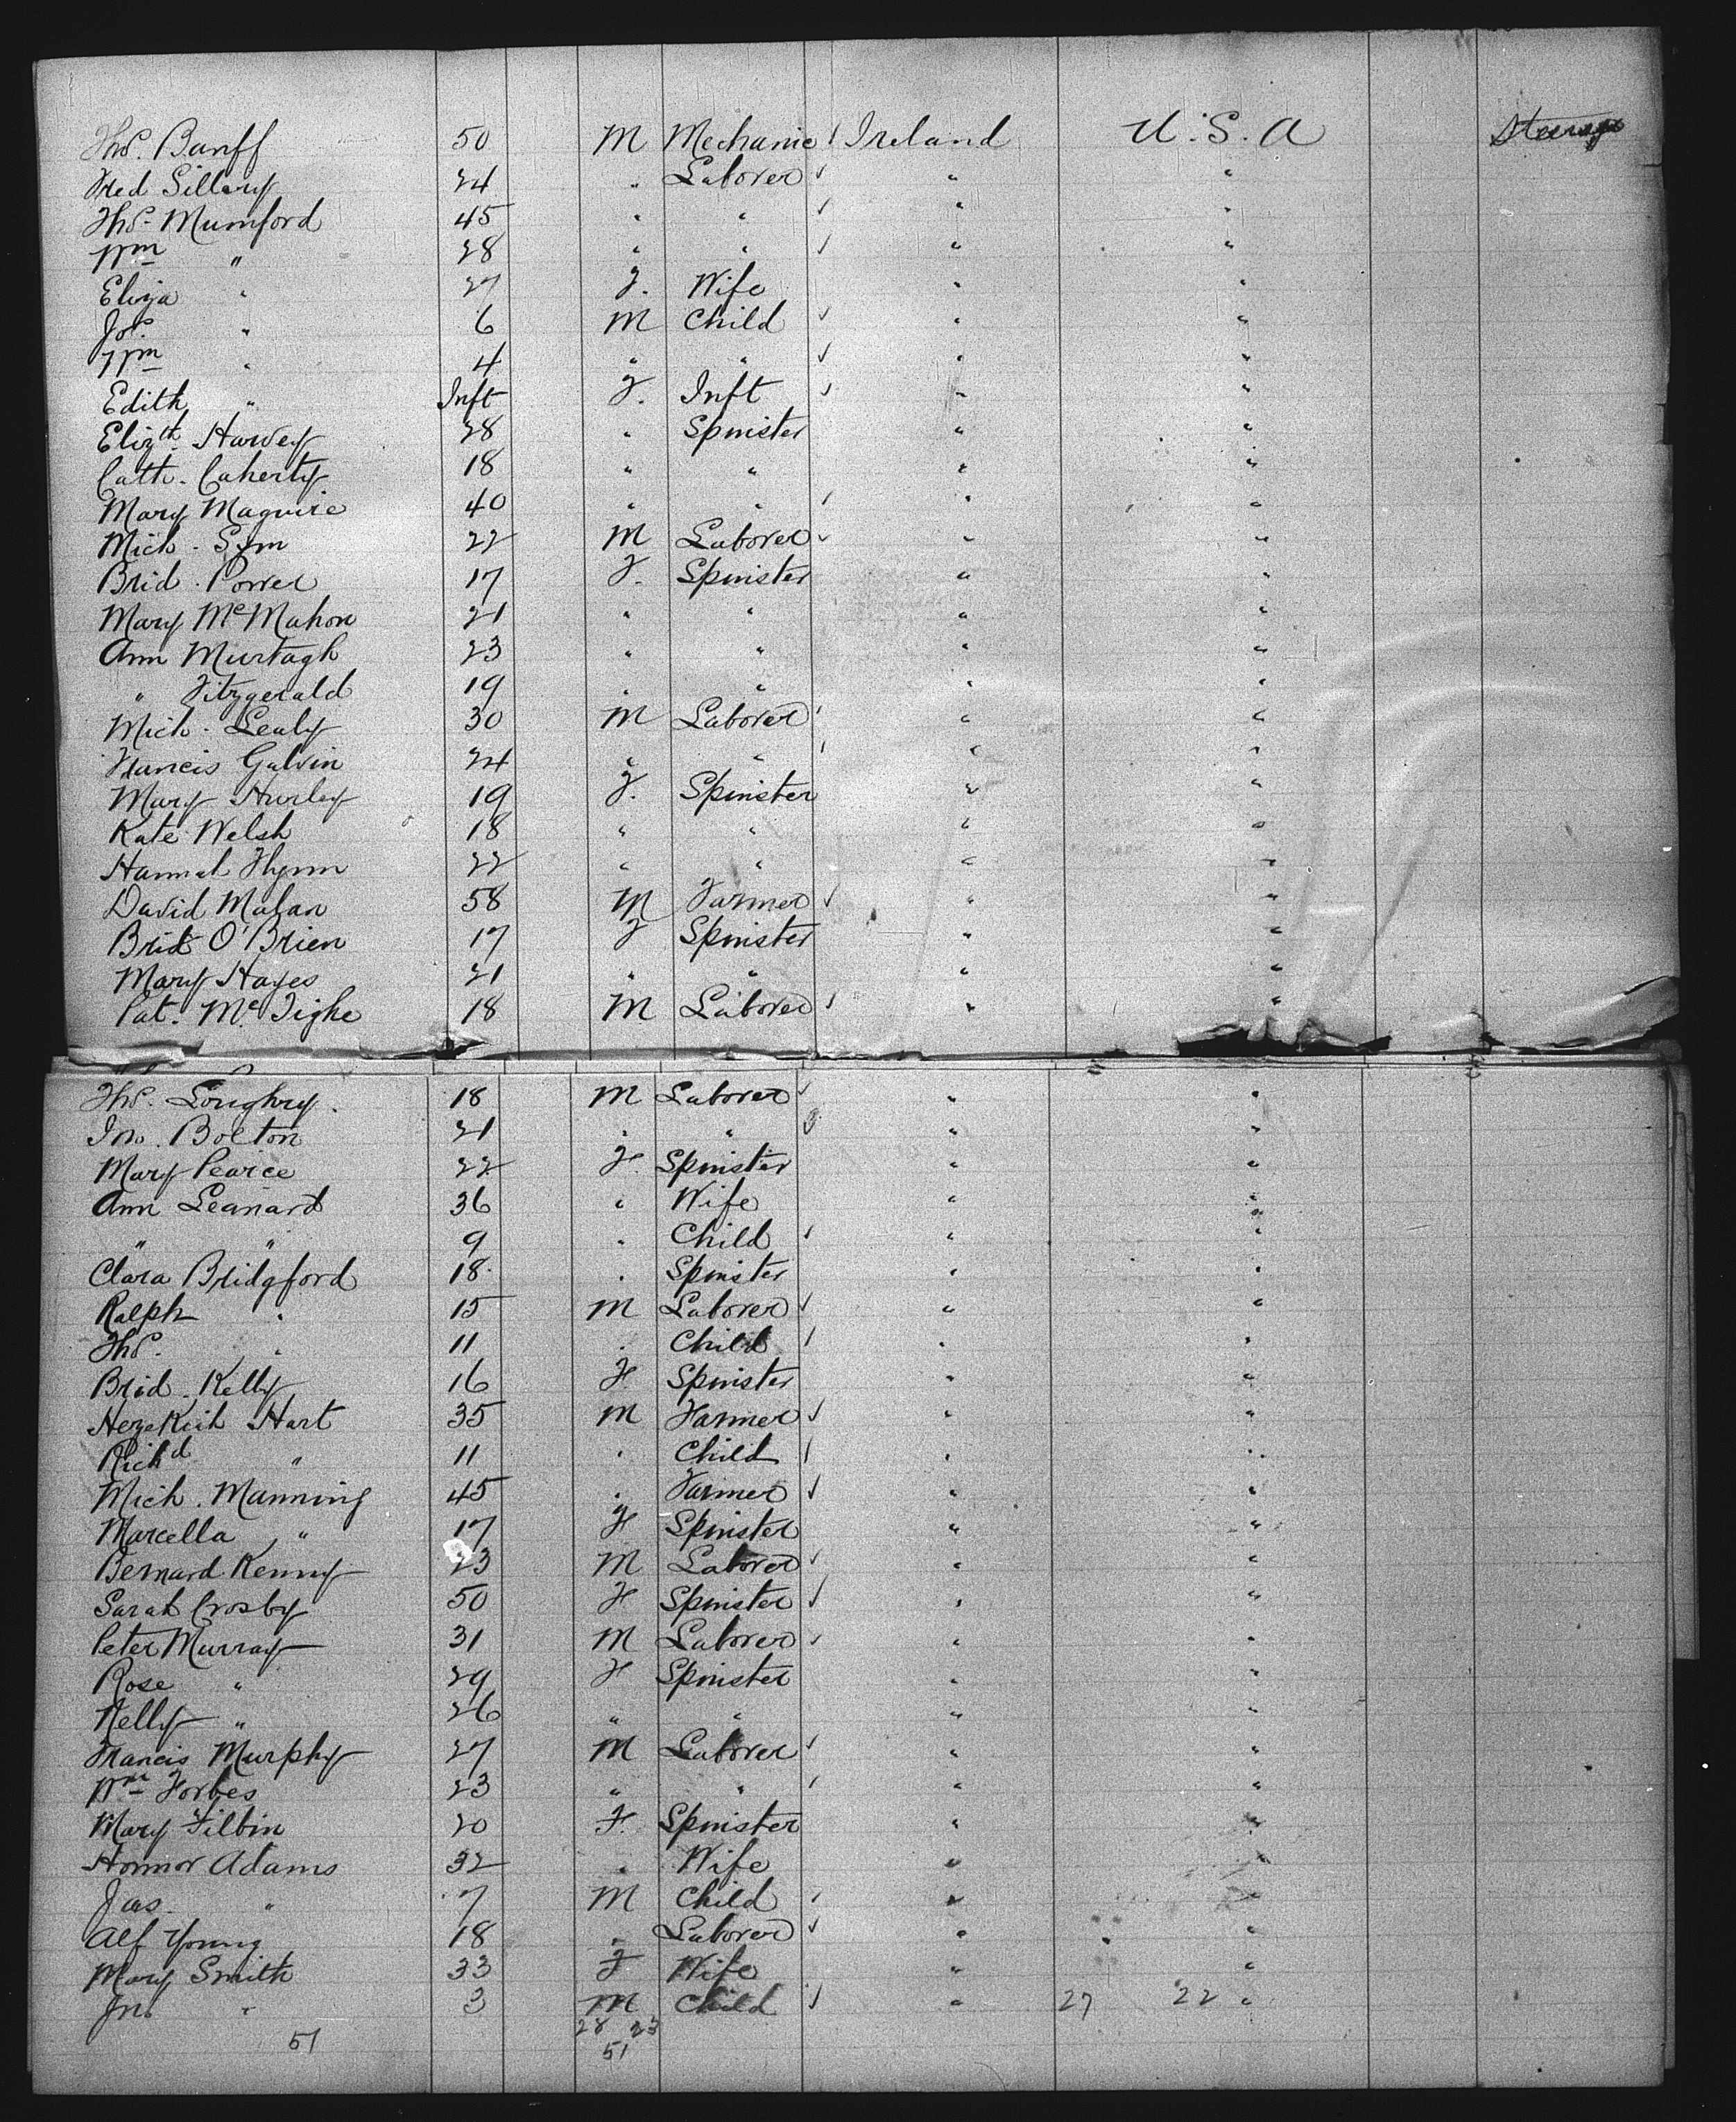 Thos. Banff 50 M Mechanic Ireland U.S.A Steerage
Fred Sillary 24 " Laborer " "
Thos. Mumford 45 " " " "
Wm " 28 " " " "
Eliza " 27 F. Wife " "
Jos. " 6 M Child " "
Wm " 4 " " " "
Edith " Inft F. Inft " "
Elizth. Harvey 28 " Spinster " "
Cath. Caherty 18 " " " "
Mary Maguire 40 " " " "
Mich. Sym 22 M Laborer " "
Brid. Power 17 F. Spinster " "
Mary McMahon 21 " " " "
Ann Murtagh 23 " " " "
" Fitzgerald 19 " " " "
Mich. Sealy 30 M Laborer " "
Francis Galvin 24 " " " "
Mary Hurley 19 F. Spinster " "
Kate Welsh 18 " " " "
Hannah Flynn 22 " " " "
David Mahan 58 M Farmer " "
Brid O'Brien 17 F Spinster " "
Mary Hayes 21 " " " "
Pat. McTighe 18 M Laborer " "
Thos. Loughry. 18 M Laborer " "
Jno. Bolton 21 " " " "
Mary Pearce 22 F. Spinster " "
Ann Leanard 36 " Wife " "
" " 9 " Child " "
Clara Bridgford 18 " Spinster " "
Ralph " 15 M Laborer " "
Thos. " 11 " Child " "
Brid. Kelly 16 F. Spinster " "
Hezekiah Hart 35 M Farmer " "
Richd " 11 " Child " "
Mich. Manning 45 " Farmer " "
Marcella " 17 F Spinster " "
Bernard Kenny 23 M Laborer " "
Sarah Crosby 50 F Spinster " "
Peter Murray 31 M Laborer " "
Rose " 29 F Spinster " "
Nelly " 26 " " " "
Francis Murphy 27 M Laborer " "
Wm Forbes 23 " " " "
Mary Filbin 20 F. Spinster " "
Honnor Adams 32 " Wife " "
Jas. " 7 M Child " "
Alf Young 18 " Laborer " "
Mary Smith 33 F Wife " "
Jno. " 3 M Child " 27 22 "
28 23
51 51